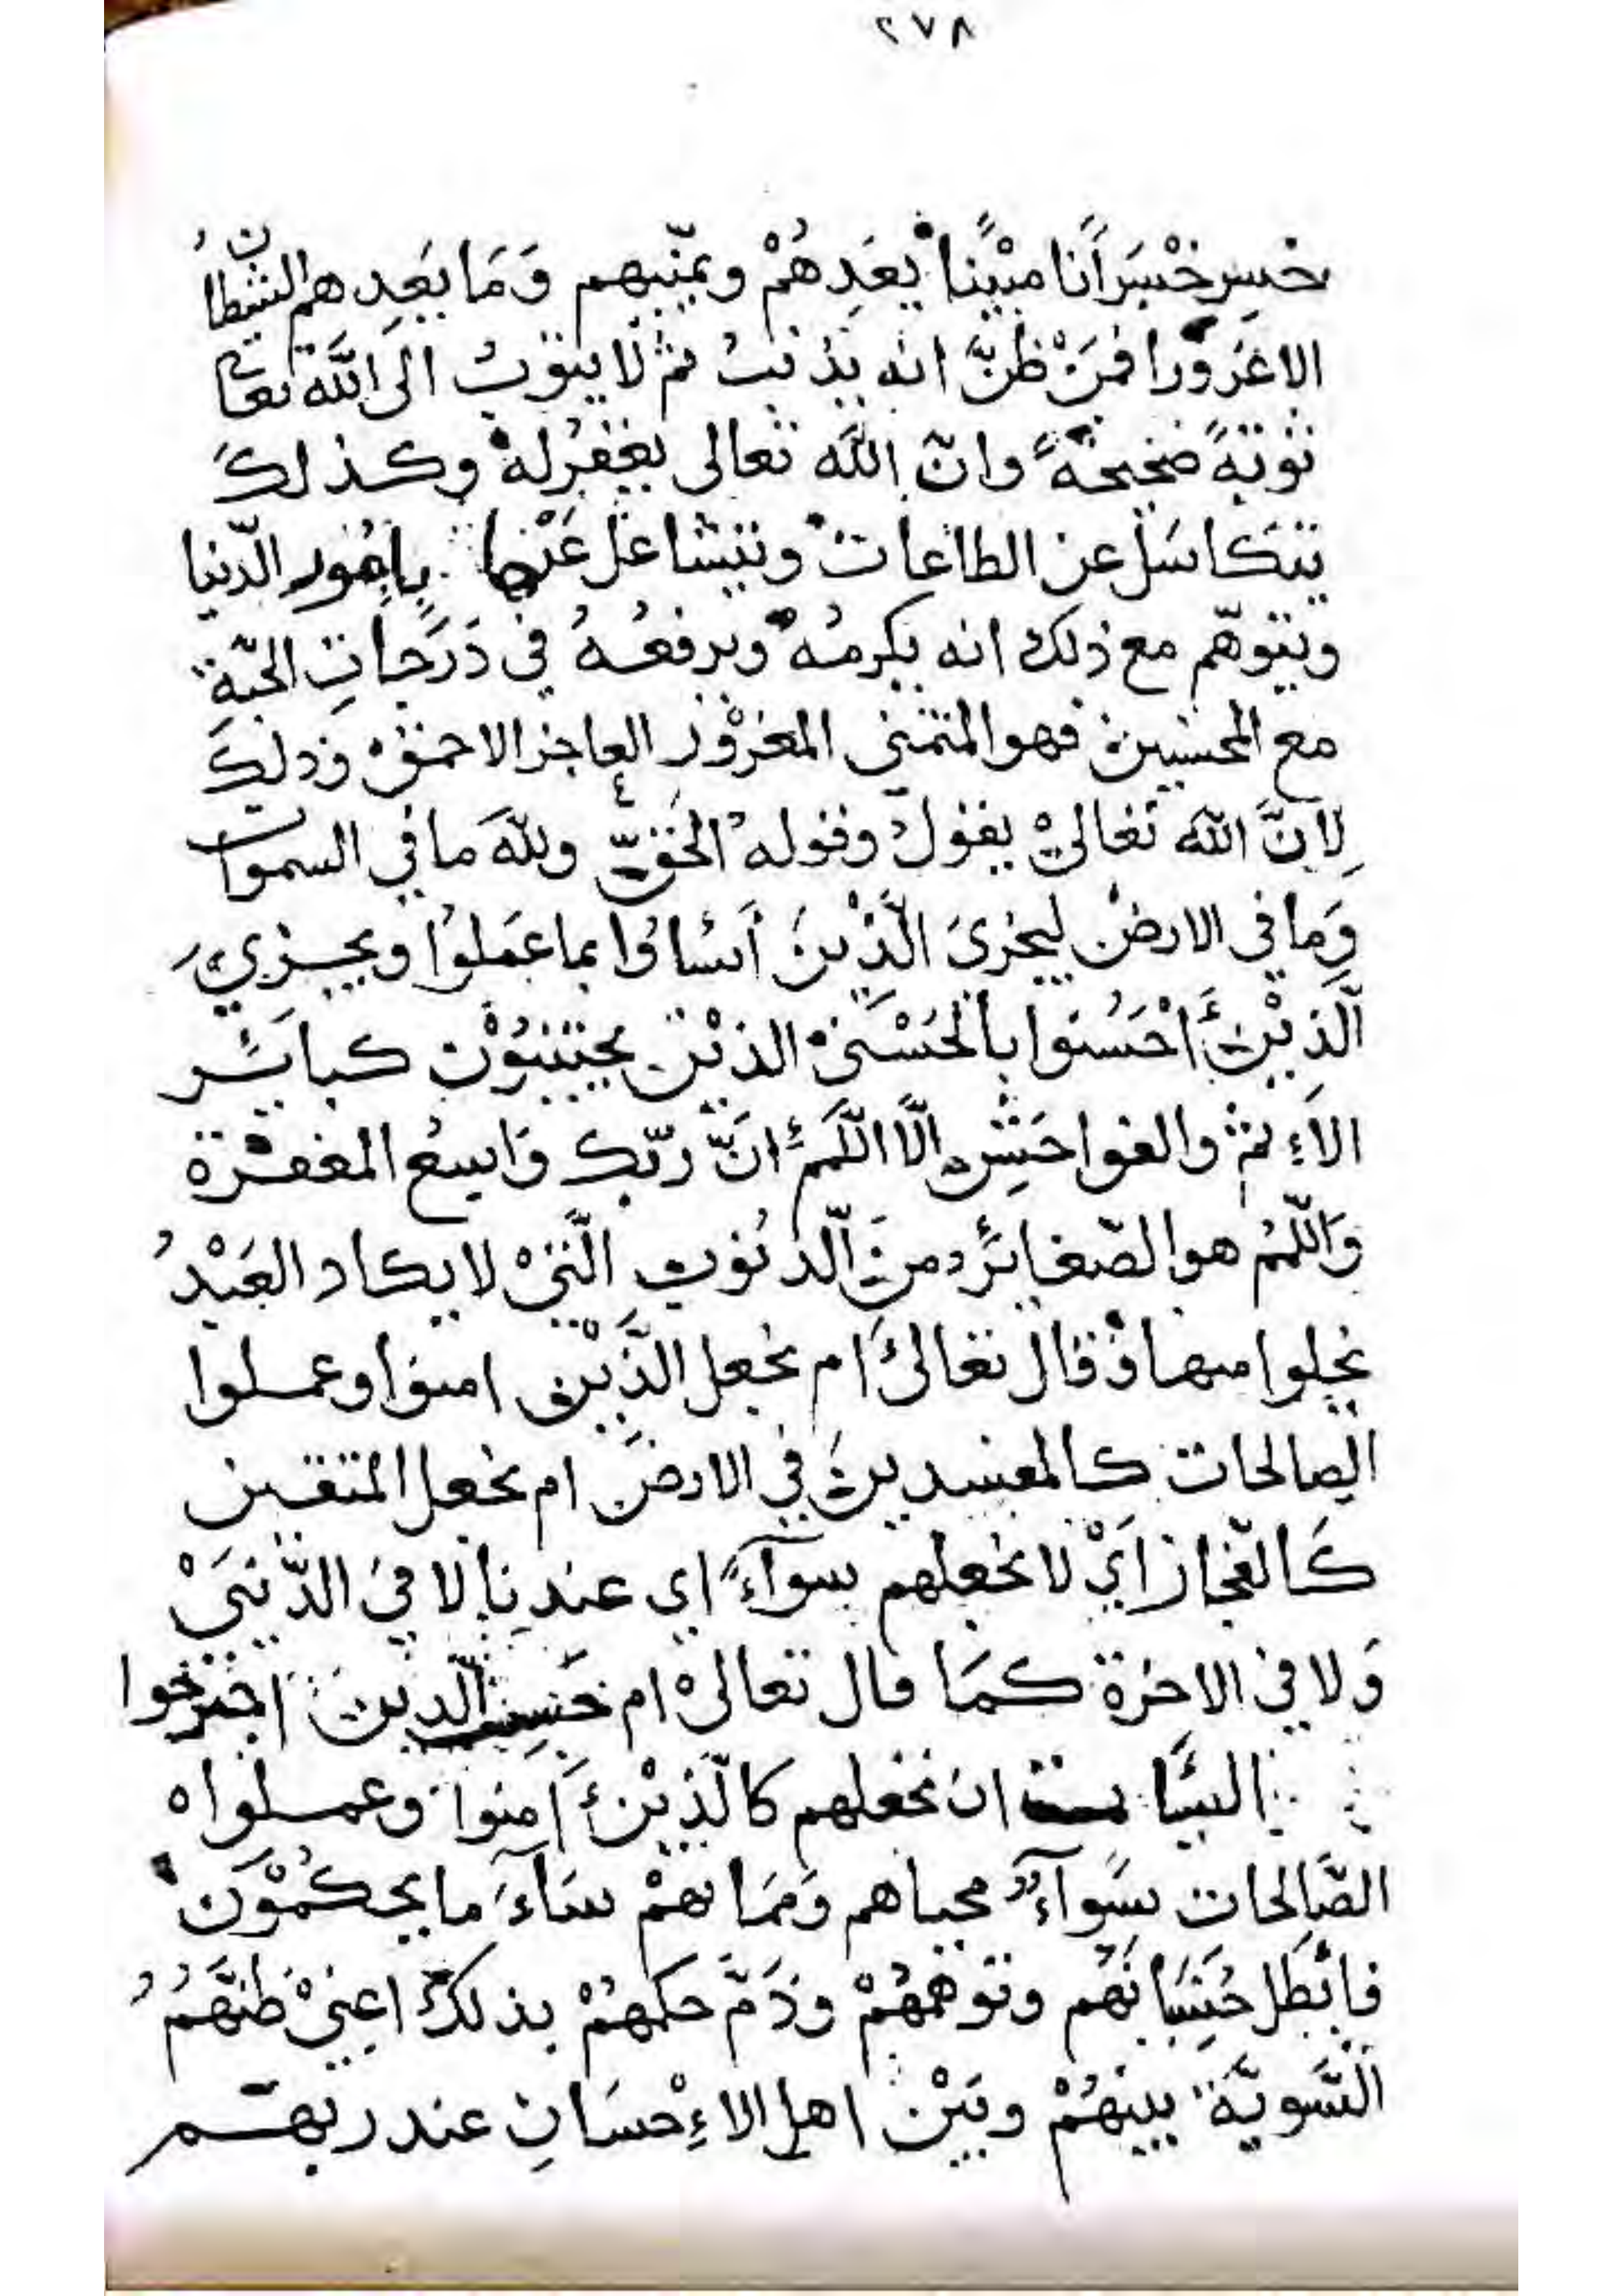 ٢٧٨
خسر خسرانا مبينا يعدهم ويمنيهم وما يعدهم الشيطان
الا غرورا فمن ظن انه يذنب ثم لا يتوب الى الله تعا
توبة صحيحة وان الله تعالى يغفر له وكذلك
يتكاسل عن الطاعات ويتشاغل عنها بامور الدنيا
ويتوهم مع ذلك انه يكرمه ويرفعه في درجات الجنة
مع المحسنين فهو المتمني المغرور العاجز الاحمق وذلك
لان الله تعالى يقول وقوله الحق ولله ما في السموات
وما في الارض ليجزي الذين أساؤا بما عملوا ويجزي
الذين أحسنوا بالحسنى الذين يجتنبون كبائر
الاءثم والفواحش الا اللمم ان ربك واسع المغفرة
واللمم هو الصغائر من الذنوب التي لا يكاد العبد
يخلوا منها وقال تعالى ام نجعل الذين امنوا وعملوا
الصالحات كالمفسدين في الارض ام نجعل المتقين
كالفجار أي لا نجعلهم سوآء اي عندنا لا في الدنيى
ولا في الاخرة كما قال تعالى ام حسب الذين اجترحوا
السيئات ان نجعلهم كالذين أمنوا وعملوا
الصالحات سوآء محياهم ومماتهم سآء ما يحكمون
فابطل حسبانهم وتوهمهم وذم حكمهم بذلك اعني ظنهم
التسوية بينهم وبين اهل الاءحسان عند ربهم